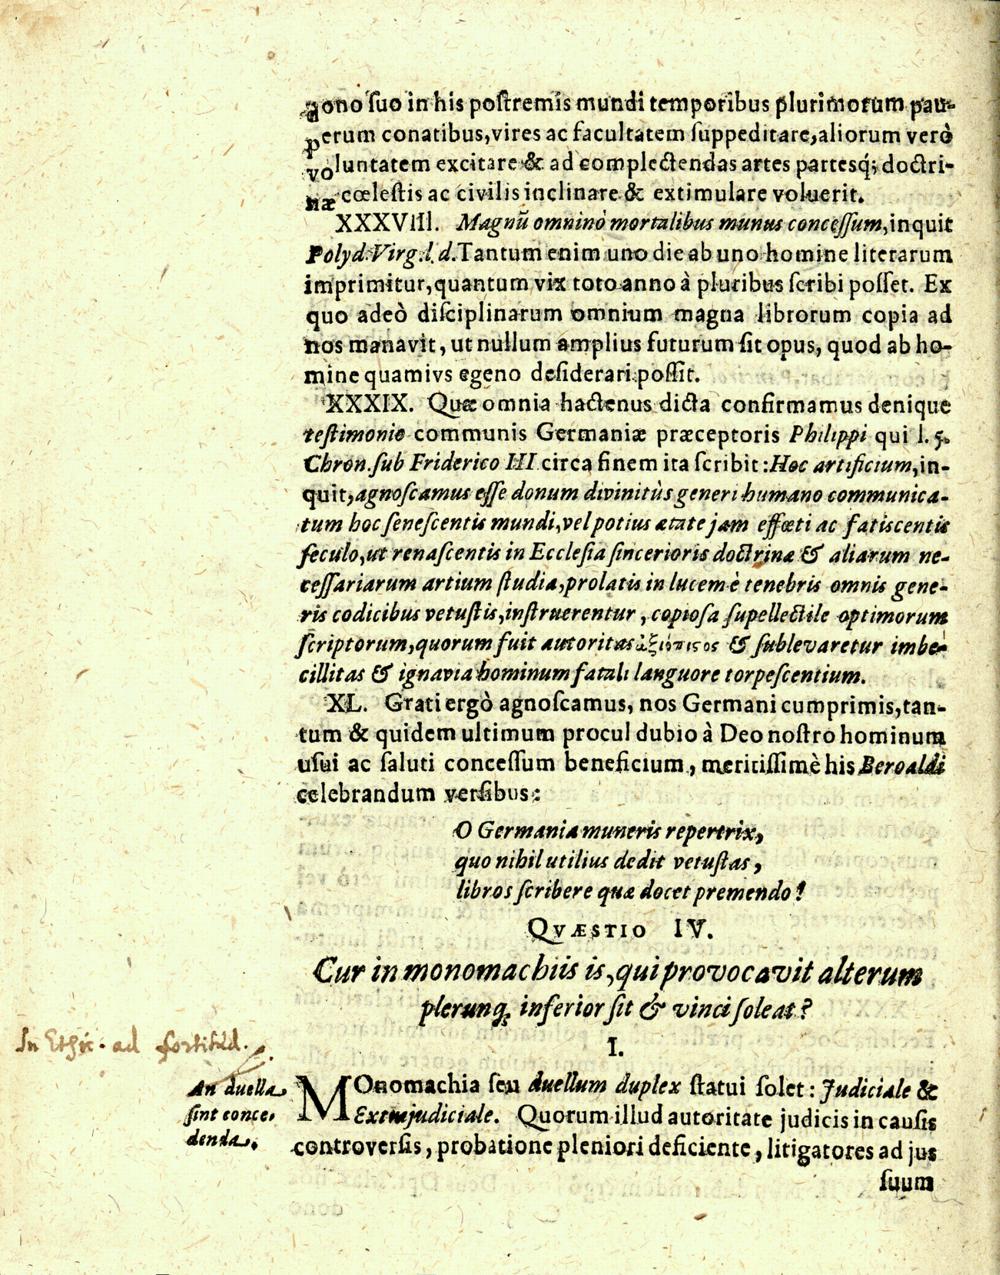 dono suo in his postremis mundi temporibus plurimorum pau-
perum conatibus, vires ac facultatem suppeditare, aliorum verò
voluntatem excitare & ad complectendas artes partesq́; doctri-
næ cœlestis ac civilis inclinare & extimulare voluerit.
XXXVIII. Magnū omninò mortalibus munus concessum, inquit
Polyd. Virg. l. d. Tantum enim uno die ab uno homine literarum
imprimitur, quantum vix toto anno à pluribus scribi posset. Ex
quo adeò disciplinarum omnium magna librorum copia ad
nos manavit, ut nullum amplius futurum sit opus, quod ab ho-
mine quamivs egeno desiderari possit.
XXXIX. Quæ omnia hactenus dicta confirmamus denique
testimonio communis Germaniæ præceptoris Philippi qui l. 5.
Chron. sub Friderico III circa finem ita scribit: Hoc artificium, in-
quit, agnoscamus esse donum divinitùs generi humano communica-
tum hoc senescentis mundi, vel potius ætate jam effœti ac fatiscentis
seculo, ut renascentis in Ecclesia sincerioris doctrinæ & aliarum ne-
cessariarum artium studia, prolatis in lucem è tenebris omnis gene-
ris codicibus vetustis, instruerentur, copiosa supellectile optimorum
scriptorum, quorum fuit autoritas ἀξιόπιςος & sublevaretur imbe-
cillitas & ignavia hominum fatali languore torpescentium.
XL. Grati ergò agnoscamus, nos Germani cumprimis, tan-
tum & quidem ultimum procul dubio à Deo nostro hominum
usui ac saluti concessum beneficium, meritissimè his Beroaldi
celebrandum versibus:
O Germania muneris repertrix,
quo nihil utilius dedit vetustas,
libros scribere quæ docet premendo!
QVÆSTIO IV.
Cur in monomachiis is, qui provocavit alterum
plerunq; inferior sit & vinci soleat?
I.
In Ethic. ad fortitud.
An duella
sint conce-
denda.
MOnomachia seu duellum duplex statui solet: Judiciale &
Extrajudiciale. Quorum illud autoritate judicis in causis
controversis, probatione pleniori deficiente, litigatores ad jus
suum